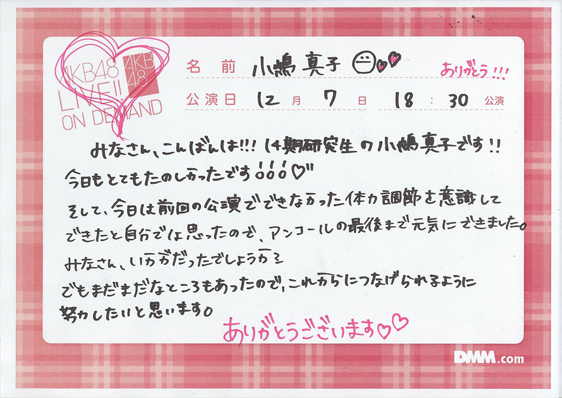 AKB48
LIVE!!
ON DEMAND
AKB
48
名前 小嶋真子
ありがとう!!!
公演日 12月7日 18:30 公演
みなさん、こんばんは!!! 14期研究生の小嶋真子です!!
今日もとてもたのしかったです!!!♡"
そして、今日は前回の公演でできなかった体力調節を意識して
できたと自分では思ったので、アンコールの最後まで元気にできました。
みなさん、いかがだったでしょうか?
でもまだまだなところもあったので、これからにつなげられるように
努力したいと思います。
ありがとうございます♡♡
DMM.com